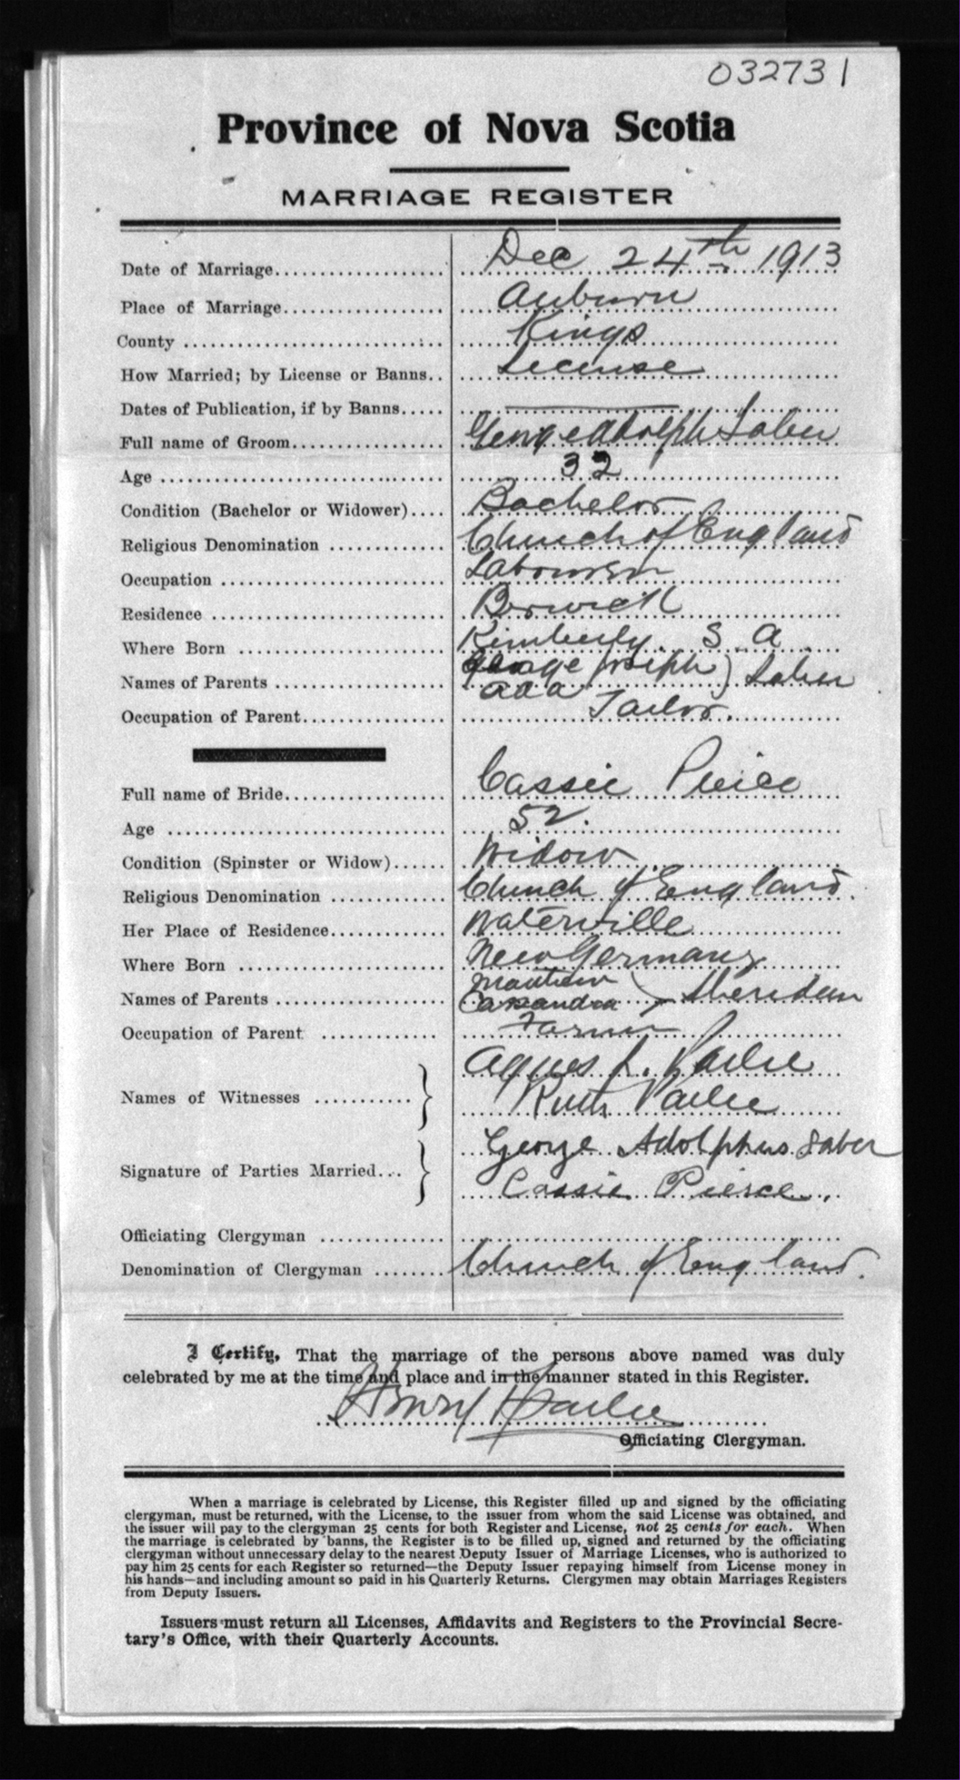 032731
Province of Nova Scotia
MARRIAGE REGISTER
Date of Marriage.................... Dec 24th 1913
Place of Marriage................... Auburn
County ............................. Kings
How Married; by License or Banns.. License
Dates of Publication, if by Banns..... ———
Full name of Groom.................. George Adolph Saber
Age ................................ 32
Condition (Bachelor or Widower).... Bachelor
Religious Denomination ............. Church of England
Occupation .........................
Residence .......................... Berwick
Where Born ......................... Kimberly S. A.
Names of Parents ................... George Joseph ) Saber
Ada
Occupation of Parent................ Tailor.
Full name of Bride.................. Cassie Pierce
Age ................................ 52.
Condition (Spinster or Widow)...... Widow
Religious Denomination ............. Church of England.
Her Place of Residence.............. Waterville
Where Born ......................... New Germany
Names of Parents ................... Mathew
Cassandra } Sheridan
Occupation of Parent ............... Farmer
Names of Witnesses ........... } Agnes L.
Ruth
Signature of Parties Married... } George Adolphus Saber
Cassie Pierce.
Officiating Clergyman ..............
Denomination of Clergyman ........ Church of England.
I Certify, That the marriage of the persons above named was duly
celebrated by me at the time and place and in the manner stated in this Register.
Henry
Officiating Clergyman.
When a marriage is celebrated by License, this Register filled up and signed by the officiating
clergyman, must be returned, with the License, to the issuer from whom the said License was obtained, and
the issuer will pay to the clergyman 25 cents for both Register and License, not 25 cents for each. When
the marriage is celebrated by banns, the Register is to be filled up, signed and returned by the officiating
clergyman without unnecessary delay to the nearest Deputy Issuer of Marriage Licenses, who is authorized to
pay him 25 cents for each Register so returned—the Deputy Issuer repaying himself from License money in
his hands—and including amount so paid in his Quarterly Returns. Clergymen may obtain Marriages Registers
from Deputy Issuers.
Issuers must return all Licenses, Affidavits and Registers to the Provincial Secre-
tary's Office, with their Quarterly Accounts.